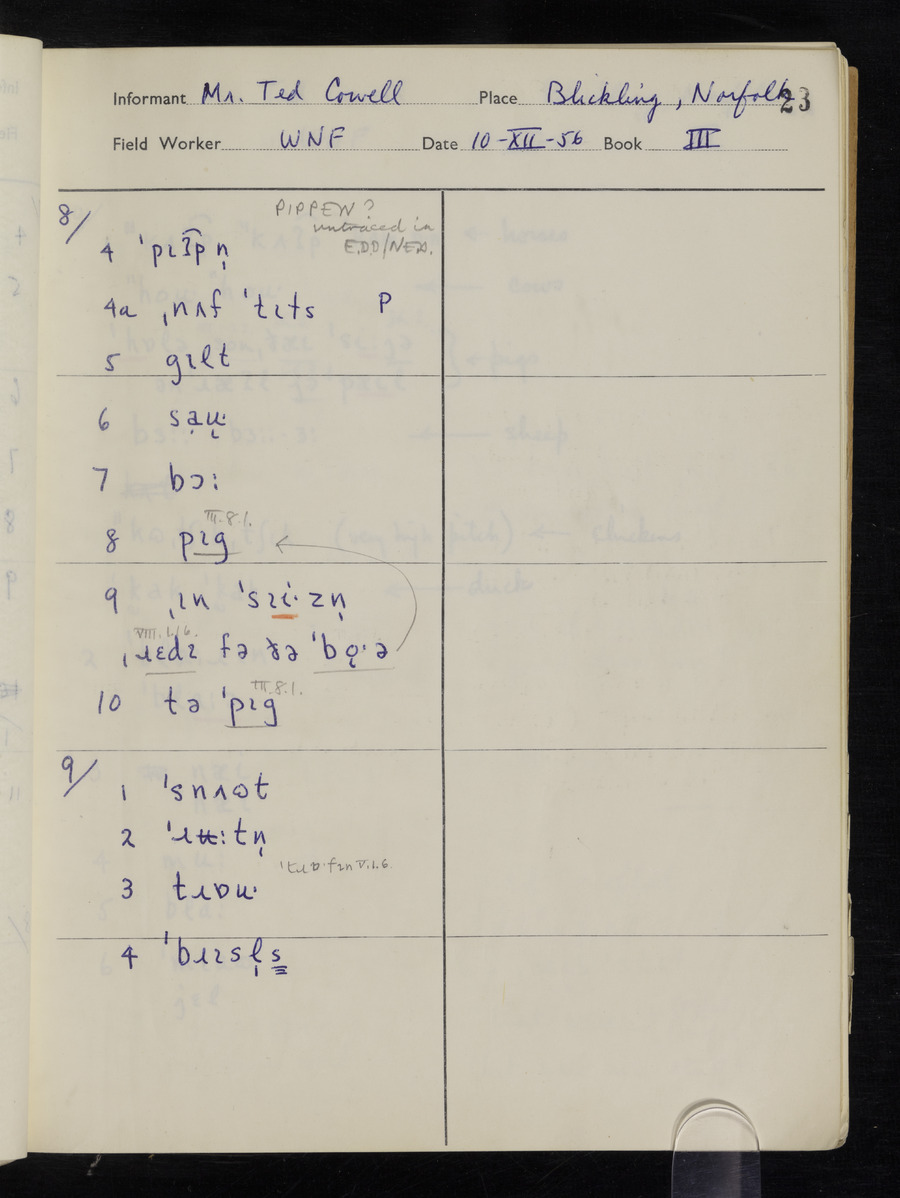 Informant Mr. Ted Cowell Place Blickling, Norfolk 23
Field Worker WNF Date 10-XII-56 Book III
8/
PIPPEN?
untraced in
E.D.D/NED.
4 ˈpɪʔ͡pn̩
4a ˌnʌf ˈtɪts P
5 gɪlt
6 sa̩ʉ̞·
7 bɔ:
III.8.1.
8 pɪg ←
9 ˌɪn ˈsɪi·zn̩
VIII.1.16.
ˌɹɛdɪ fə ðə ˈbo̜·ə
III.8.1.
10 tə ˈpɪg
9/
1 ˈsnʌʊt
2 ˈɹʉ:tn̩
ˈtɹɒ·fɪn V.1.6.
3 tɹɒʉ·
4 ˈbɹɪsl̩s